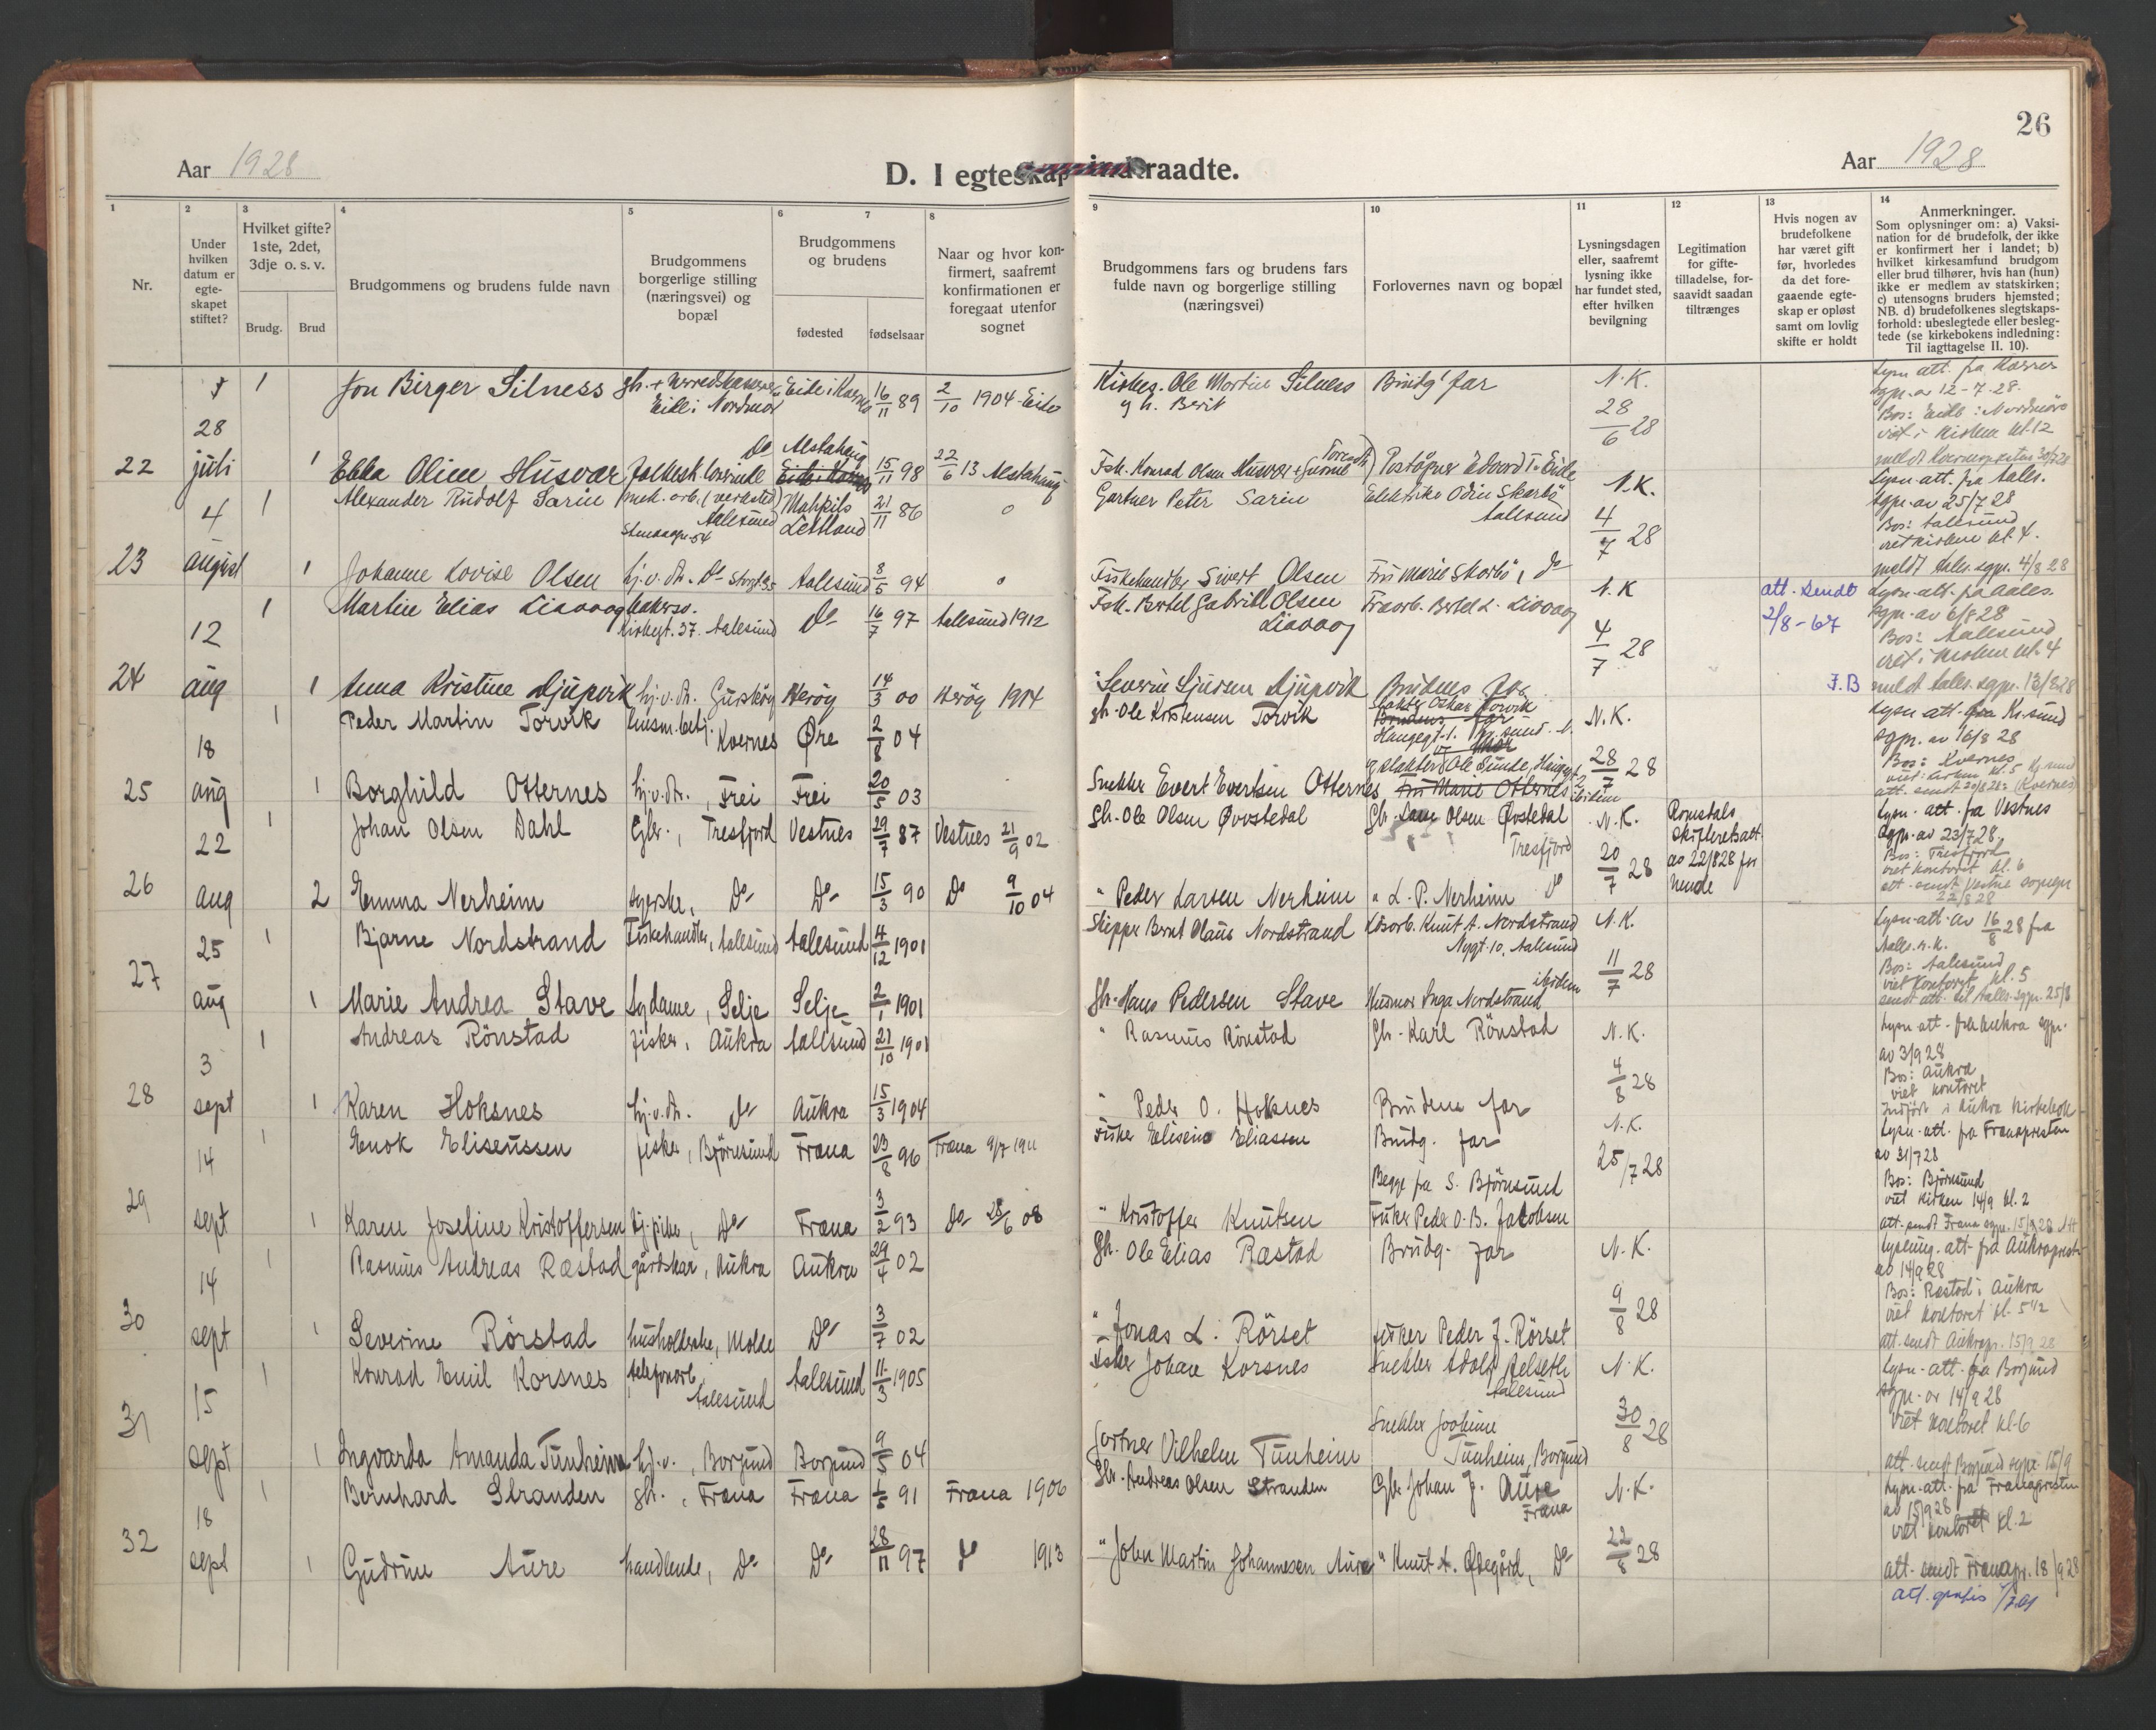 26
Aar 1928
D. I egteskap indtraadte.
Aar 1928
1
2
3
4
5
6
7
8
9
10
11
12
13
14
Nr.
Under
hvilken
datum er
egte-
skapet
stiftet?
Hvilket gifte?
1ste, 2det,
3dje o. s. v.
Brudg.
Brud
Brudgommens og brudens fulde navn
Brudgommens
borgerlige stilling
(næringsvei) og
bopæl
Brudgommens
og brudens
fødested
fødselsaar
Naar og hvor kon-
firmert, saafremt
konfirmationen er
foregaat utenfor
sognet
Brudgommens fars og brudens fars
fulde navn og borgerlige stilling
(næringsvei)
Forlovernes navn og bopæl
Lysningsdagen
eller, saafremt
lysning ikke
har fundet sted,
efter hvilken
bevilgning
Legitimation
for gifte-
tilladelse, for-
saavidt saadan
tiltrænges
Hvis nogen av
brudefolkene
har været gift
før, hvorledes
da det fore-
gaaende egte-
skap er opløst
samt om lovlig
skifte er holdt
Anmerkninger.
Som oplysninger om: a) Vaksi-
nation for de brudefolk, der ikke
er konfirmert her i landet; b)
hvilket kirkesamfund brudgom
eller brud tilhører, hvis han (hun)
ikke er medlem av statskirken;
c) utensogns bruders hjemsted;
NB. d) brudefolkenes slegtskaps-
forhold: ubeslegtede eller besleg-
tede (se kirkebokens indledning:
Til iagttagelse II. 10).
22
28
juli
1 Jon Birger Silness
Eide i Nordmør
16/11 89
2/10 1904 Eide
Ole Martin Silness
Brudg' far
N.K.
28/6 28
av 12-7-28
Bos: Eide i Nordmøre
viet i kirken kl. 12
1 Ebba Oline Husvær
Do Alstahaug
15/11 98
22/6 13 Alstahaug
Fsk. Konrad Olsen Husvær
23
4
august
1 Alexander Rudolf Sarin
mek. arb. (verksted)
Aalesund
Lettland
21/11 86
o
Gartner Peter Sarin
Elektriker Odin Skorbö
Aalesund
N.K.
4/7 28
Lysn. att. fra Aales.
sgpr. av 25/7 28
Bos: Aalesund
viet kirken kl. 4.
meldt Aales. sgpr. 4/8 28
1 Johanne Lovise Olsen
hj. v. dr. Do
Aalesund
8/5 94
o
Fiskehandler Sivert Olsen
Fru Marie Skorbö, do
24
12
aug
1 Martin Elias Liavaag
Kirkegt. 37. Aalesund
Do
16/7 97
Aalesund 1912
Fsk. Bertel Gabriel Olsen
Liavaag
N.K
4/7 28
att. sendt
2/8-67
F.B
Lysn. att. fra Aales.
sgpr. av 6/8 28
Bos: Aalesund
viet i kirken kl. 4
meldt Aales. sgpr. 13/8 28
1 Anna Kristine Djupvik
hj. v. dr. Gurskøy
Herøy
14/3 00
Herøy 1914
Severin Sjursen Djupvik
Brudens far
25
18
aug
1 Peder Martin Torvik
Kvernes
Øre
2/8 04
gbr. Ole Kristensen Torvik
N.K.
28/7 28
Lysn. att. fra Kr.sund
sgpr. av 16/8 28
Bos: Kvernes
1 Borghild Otternes
hj. v. dr., Frei
Frei
20/5 03
Snekker Evert Evertsen Otternes
26
22
aug
1 Johan Olsen Dahl
Gbr., Tresfjord
Vestnes
29/7 87
Vestnes 21/9 02
Gbr. Ole Olsen Øvstedal
Olsen Øvstedal
Tresfjord
N.K.
20/7 28
Romsdals
skifteretsatt.
av 22/8 28 for
hende
Lysn. att. fra Vestnes
sgpr. av 23/7 28.
Bos: Tresfjord
viet kontoret kl. 6
22/8 28
2 Emma Nerheim
syerske, Do
Do
15/3 90
Do 9/10 04
" Peder Larsen Nerheim
" L. P. Nerheim do
27
25
aug
1 Bjarne Nordstrand
Fiskehandler, Aalesund
Aalesund
4/12 1901
Skipper Bernt Olaus Nordstrand
Løsarb. Knut A. Nordstrand
Nygt. 10, Aalesund
N.K.
11/7 28
Lysn. att. av 16/8 28 fra
Bos: Aalesund
viet kontoret kl. 5
1 Marie Andrea Stave
sydame, Selje
Selje
2/1 1901
Gbr. Hans Pedersen Stave
Husmor Inga Nordstrand
ibidem
28
3
sept
1 Andreas Rönstad
fisker, Aukra
Aalesund
21/10 1901
" Rasmus Rönstad
Gbr. Karl Rönstad
N.K.
4/8 28
Lysn. att. fra Aukra sgpr.
av 3/9 28
Bos: Aukra
viet kontoret
Indfört i Aukra kirkebok
1 Karen Hoksnes
hj. v. dr. Do
Aukra
15/3 1904
" Peder O. Hoksnes
Brudens far
29
14
sept
1 Enok Eliseussen
fisker, Björnsund
Fræna
23/8 96
Fræna 9/7 1911
Fisker Eliseus Eliassen
Brudg. far
Begge fra S. Björnsund
N.K.
25/7 28
Lysn. att. fra Frænapresten
av 31/7 28
Bos: Björnsund
viet kirken 14/9 kl. 2
1 Karen Josefine Kristoffersen
Do
Fræna
3/2 93
Do 28/6 08
" Kristoffer Knutsen
Fisker Peder O. B. Jakobsen
30
14
sept
1 Rasmus Andreas Ræstad
gårdskar, Aukra
Aukra
29/4 02
Gbr. Ole Elias Ræstad
Brudg. far
N.K.
9/8 28
Lysning. att. fra Aukrapresten
av 14/9 28
Bos: Ræstad i Aukra
viet kontoret kl. 5 1/2
att. sendt Aukrapr. 15/9 28
1 Severine Rörstad
husholderske, Molde
Do
3/7 02
" Jonas L. Rörset
fisker Peder J. Rörset
31
15
sept
1 Konrad Emil Korsnes
telefonarb.
Aalesund
Aalesund
11/3 1905
Fisker Johan Korsnes
Snekker Adolf Relseth
Aalesund
N.K.
30/8 28
Lysn. att. fra Borgund
sgpr. av 14/9 28
viet kontoret kl. 6
att. sendt Borgund sgpr. 15/9
1 Ingvarda Amanda Tunheim
hj. v., Borgund
Borgund
9/5 04
Gartner Vilhelm Tunheim
Snekker
Tunheim, Borgund
32
18
sept
1 Bernhard Stranden
gbr., Fræna
Fræna
91
Fræna 1906
Gbr. Andreas Olsen Stranden
Gbr. Johan J. Aure
Fræna
N.K.
22/8 28
Lysn. att. fra Frænapresten
av 15/9 28
viet kontoret kl. 2
att. sendt Frænapr. 18/9 28
att. gratis
1 Gudrun Aure
handlende, Do
Do
28/11 97
1913
" John Martin Johannesen Aure
" Knut A. Ødegård, Do